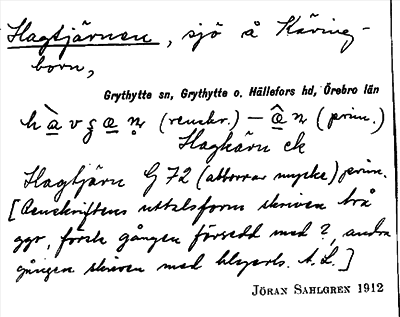 Hagtjärnen, sjö å Käring-
born,
Grythytte sn, Grythytte o. Hällefors hd, Örebro län
(renskr.) — (prim.)
Hagkärn ek
Hagtjärn G 72 (abborrar mycke) prim.
[Renskriftens uttalsform skriven två
ggr, första gången försedd med ?, andra
gången skriven med blyerts. A. L.]
JÖRAN SAHLGREN 1912